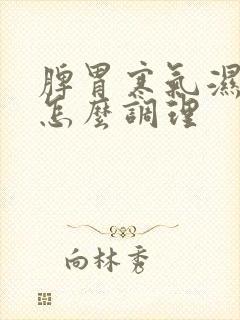 脾胃寒氣濕
怎麼調理
向林秀